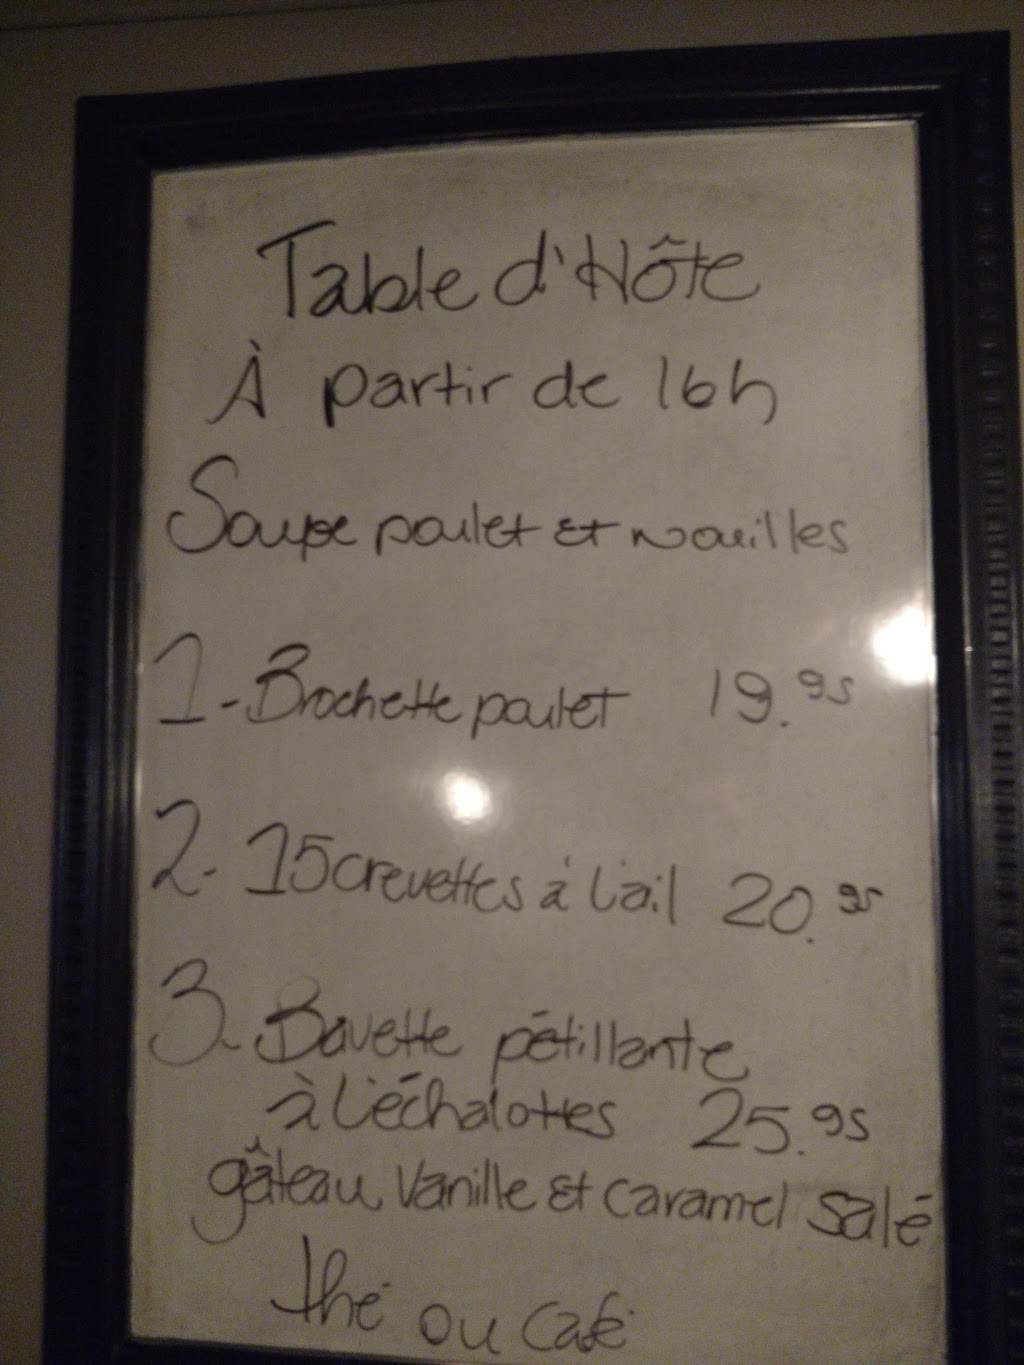 Table d'Hôte
À partir de 16h
Soupe poulet et nouilles
1- Brochette poulet 19.95
2- 15 crevettes à l'ail 20.95
3- Bavette pétillante
à l'échalottes 25.95
gâteau vanille et caramel salé
thé ou café